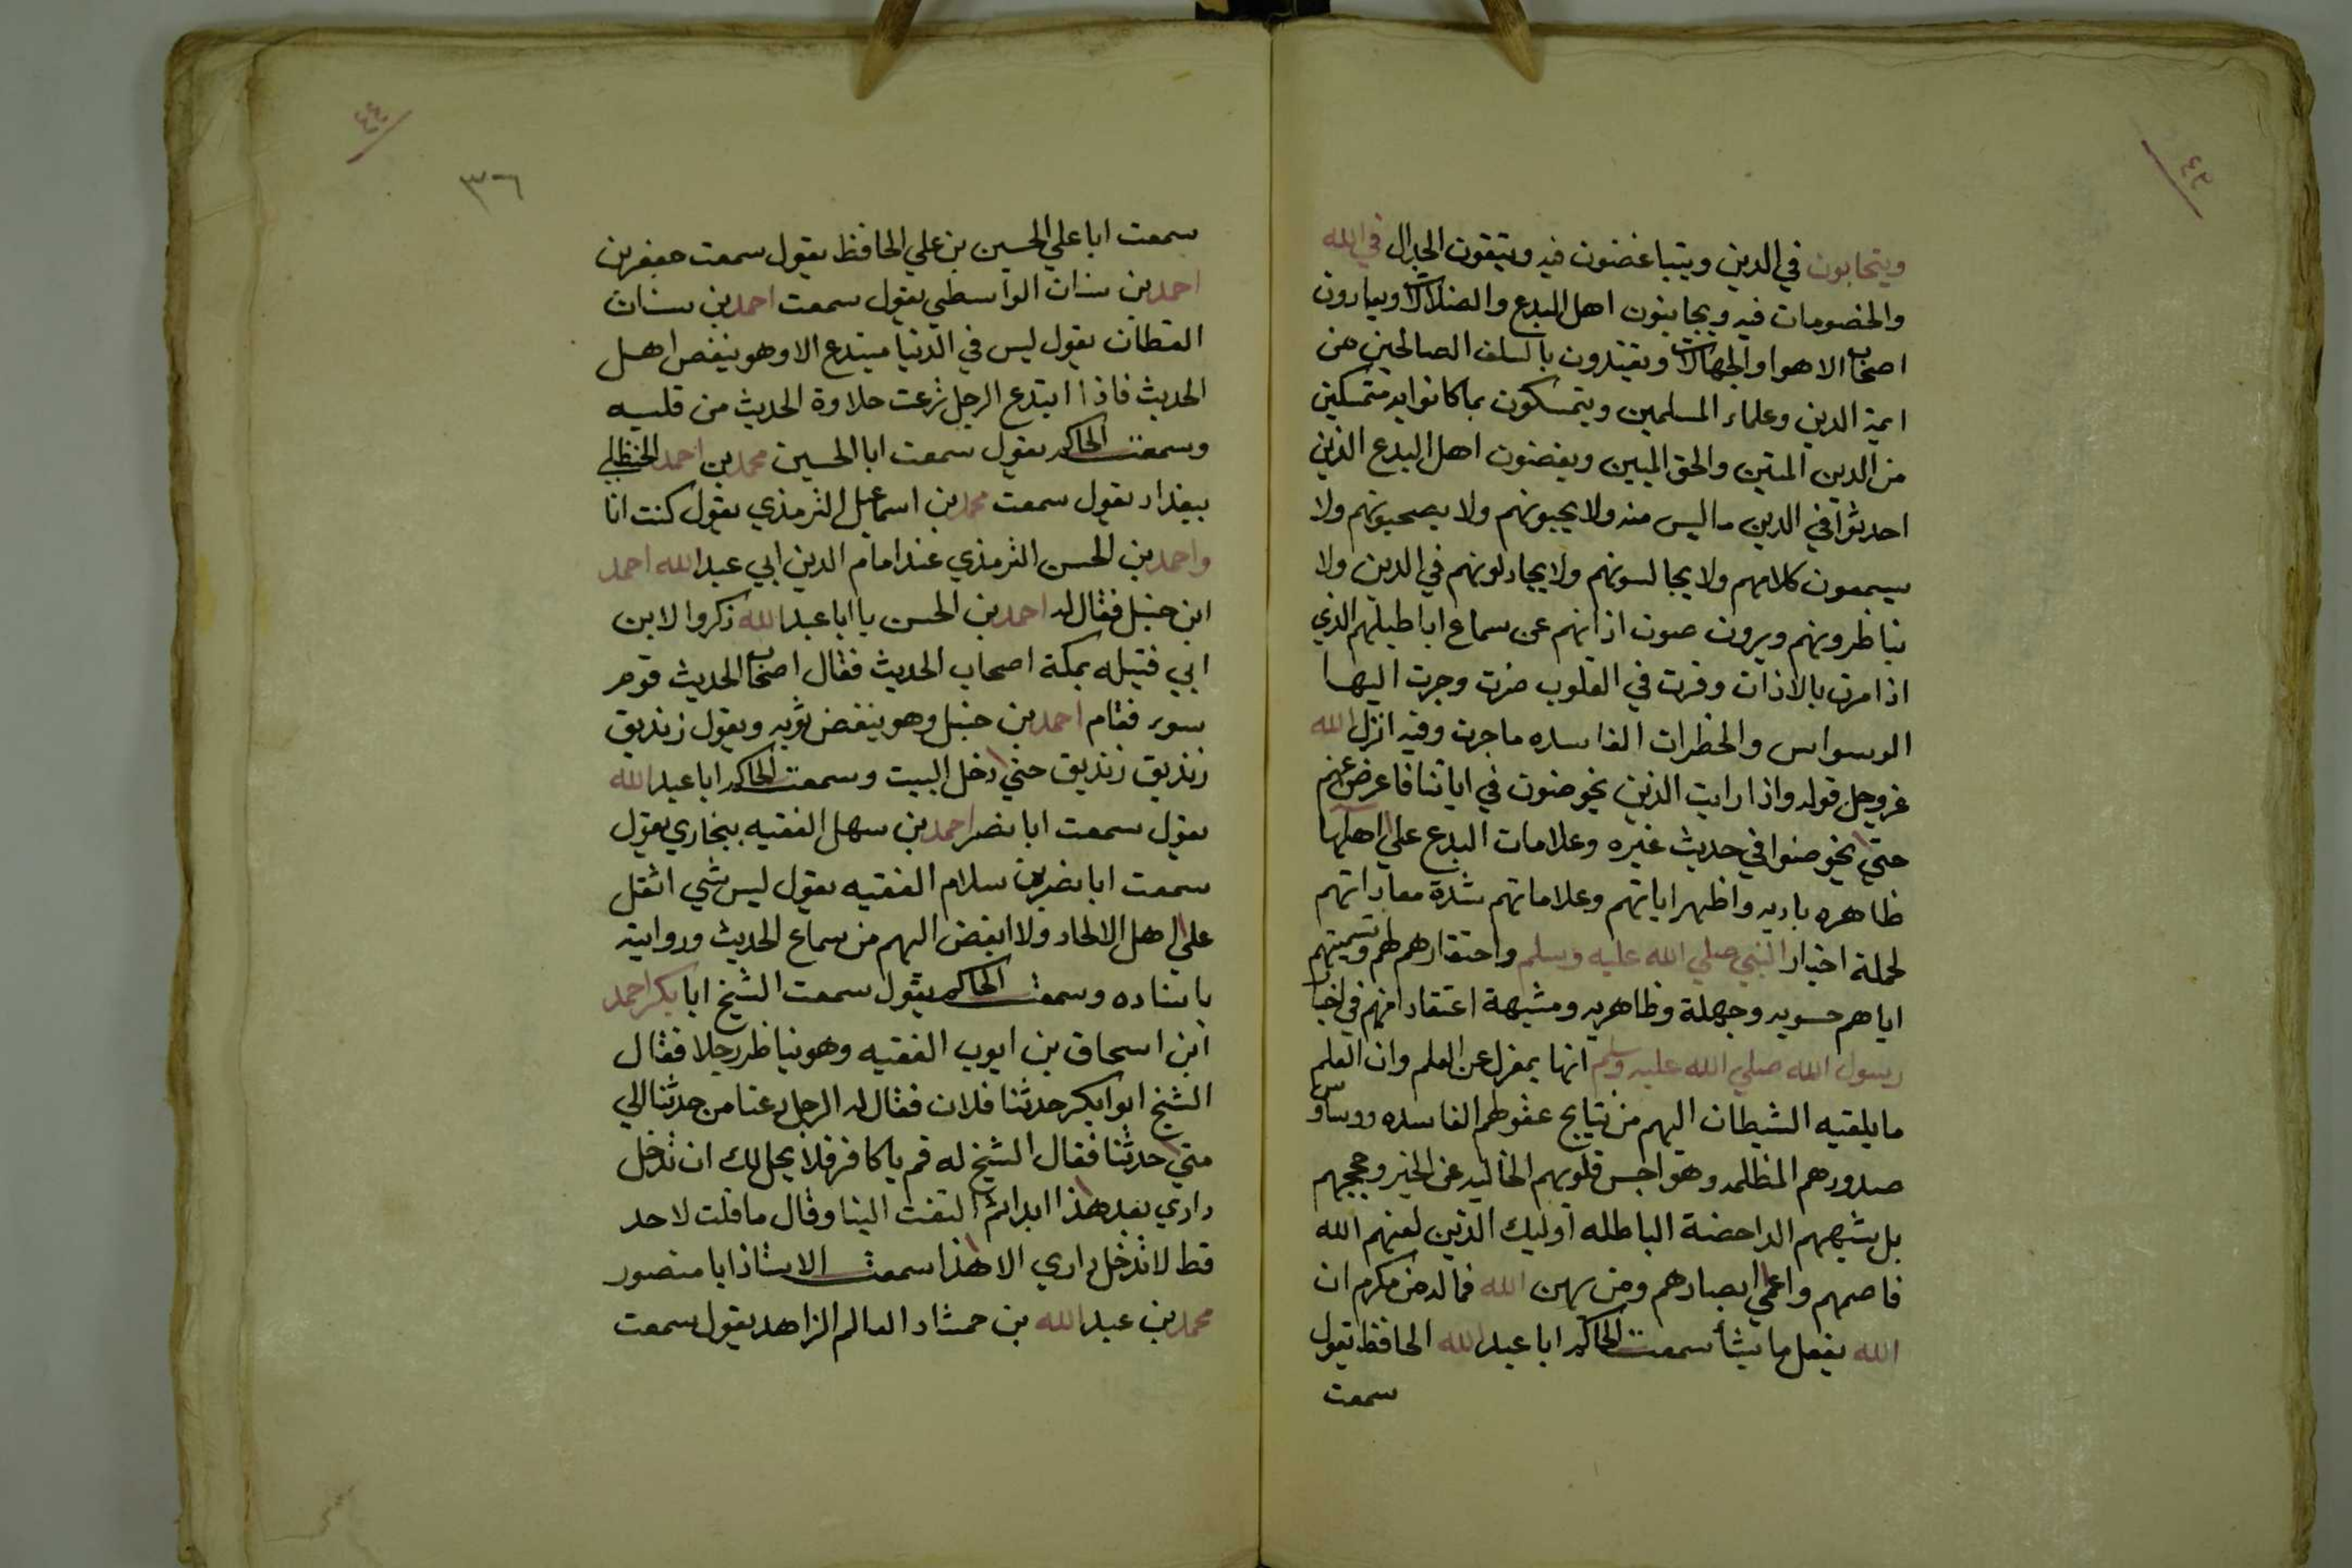 ٤٣
ويتحابون في الدين ويتباغضون فيه ويتقون الجدال في الله
والخصومات فيه ويجانبون اهل البدع والضلالات ويعادون
اصحاب الاهوا والجهالات ويقتدون بالسلف الصالحين من
ايمة الدين وعلماء المسلمين ويتمسكون بما كانوا به متمسكين
من الدين المتين والحق المبين ويغضون اهل البدع الذين
احدثوا في الدين ما ليس منه ولا يحبونهم ولا يصحبونهم ولا
يسمعون كلامهم ولا يجالسونهم ولا يجادلونهم في الدين ولا
يناظرونهم ويرون صون اذانهم عن سماع اباطيلهم الذي
اذا مرت بالاذان وقرت في القلوب ضرت وجرت اليها
الوسواس والخطرات الفاسده ما جرت وفيه انزل الله
عز وجل قوله واذا رايت الذين يخوضون في اياتنا فاعرض عنهم
حتي يخوضوا في حديث غيره وعلامات البدع علي اهلها
ظاهره باديه واظهر اياتهم وعلاماتهم شدة معاداتهم
لحملة اخبار النبي صلي الله عليه وسلم واحتقارهم لهم وتسميتهم
اياهم حسويه وجهلة وظاهريه ومشبهة اعتقادا منهم في اخبار
رسول الله صلي الله عليه وسلم انها بمعزل عن العلم وان العلم
ما يلقيه الشيطان اليهم من نتايج عقولهم الفاسده ووساوس
صدورهم المظلمه وهواجس قلوبهم الخاليه عن الخير وحججهم
بل شبههم الداحضة الباطله اوليك الذين لعنهم الله
فاصمهم واعمي ابصارهم ومن يهن الله فما له من مكرم ان
الله يفعل ما يشأ سمعت الحاكم ابا عبد الله الحافظ يقول
سمعت
٤٤
٣٦
سمعت ابا علي الحسين بن علي الحافظ يقول سمعت جعفر بن
احمد بن سنان الواسطي يقول سمعت احمد بن سنان
القطان يقول ليس في الدنيا مبتدع الا وهو ينغص اهل
الحديث فاذا ابتدع الرجل نزعت حلاوة الحديث من قلبه
وسمعت الحاكم يقول سمعت ابا الحسين محمد بن احمد الحنظلي
ببغداد يقول سمعت محمد بن اسماعيل الترمذي يقول كنت انا
واحمد بن الحسن الترمذي عند امام الدين ابي عبد الله احمد
ابن حنبل فقال له احمد بن الحسن يا ابا عبد الله ذكروا لابن
ابي قتيله بمكة اصحاب الحديث فقال اصحاب الحديث قوم
سوء فقام احمد بن حنبل وهو ينفض ثوبه ويقول زنديق
زنديق زنديق حتي دخل البيت وسمعت الحاكم ابا عبد الله
يقول سمعت ابا نصر احمد بن سهل الفقيه ببخاري يقول
سمعت ابا نصر بن سلام الفقيه يقول ليس شي اثقل
علي اهل الالحاد ولا ابغض اليهم من سماع الحديث وروايته
باسناده وسمعت الحاكم يقول سمعت الشيخ ابا بكر احمد
ابن اسحاق بن ايوب الفقيه وهو يناظر رجلا فقال
الشيخ ابوابكر حدثنا فلان فقال له الرجل دعنا من حدثنا الي
متي حدثنا فقال الشيخ له قم يا كافر فلا يحل لك ان تدخل
داري بعد هذا ابدا ثم التفت الينا وقال ما قلت لاحد
قط لا تدخل داري الا هذا سمعت الاستاذ ابا منصور
محمد بن عبد الله بن حمشاد العالم الزاهد يقول سمعت